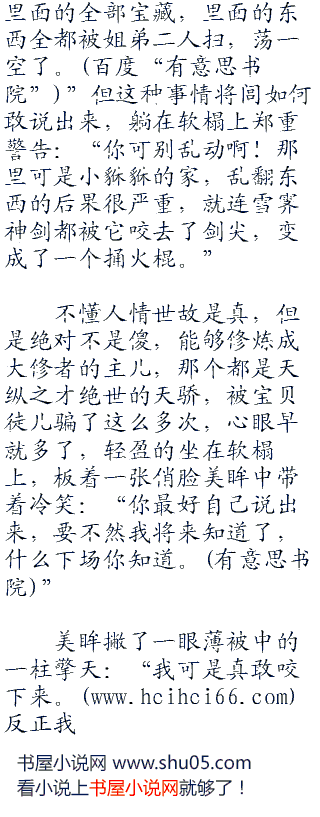 里面的全部宝藏，里面的东
西全都被姐弟二人扫，荡一
空了。(百度“有意思书
院”)”但这种事情将闾如何
敢说出来，躺在软榻上郑重
警告：“你可别乱动啊！那
里可是小貅貅的家，乱翻东
西的后果很严重，就连雪霁
神剑都被它咬去了剑尖，变
成了一个捅火棍。”
不懂人情世故是真，但
是绝对不是傻，能够修炼成
大修者的主儿，那个都是天
纵之才绝世的天骄，被宝贝
徒儿骗了这么多次，心眼早
就多了，轻盈的坐在软榻
上，板着一张俏脸美眸中带
着冷笑：“你最好自己说出
来，要不然我将来知道了，
什么下场你知道。(有意思书
院)”
美眸撇了一眼薄被中的
一柱擎天：“我可是真敢咬
下来。(www.hcihci66.com)
反正我
书屋小说网 www.shu05.com
看小说上书屋小说网就够了！